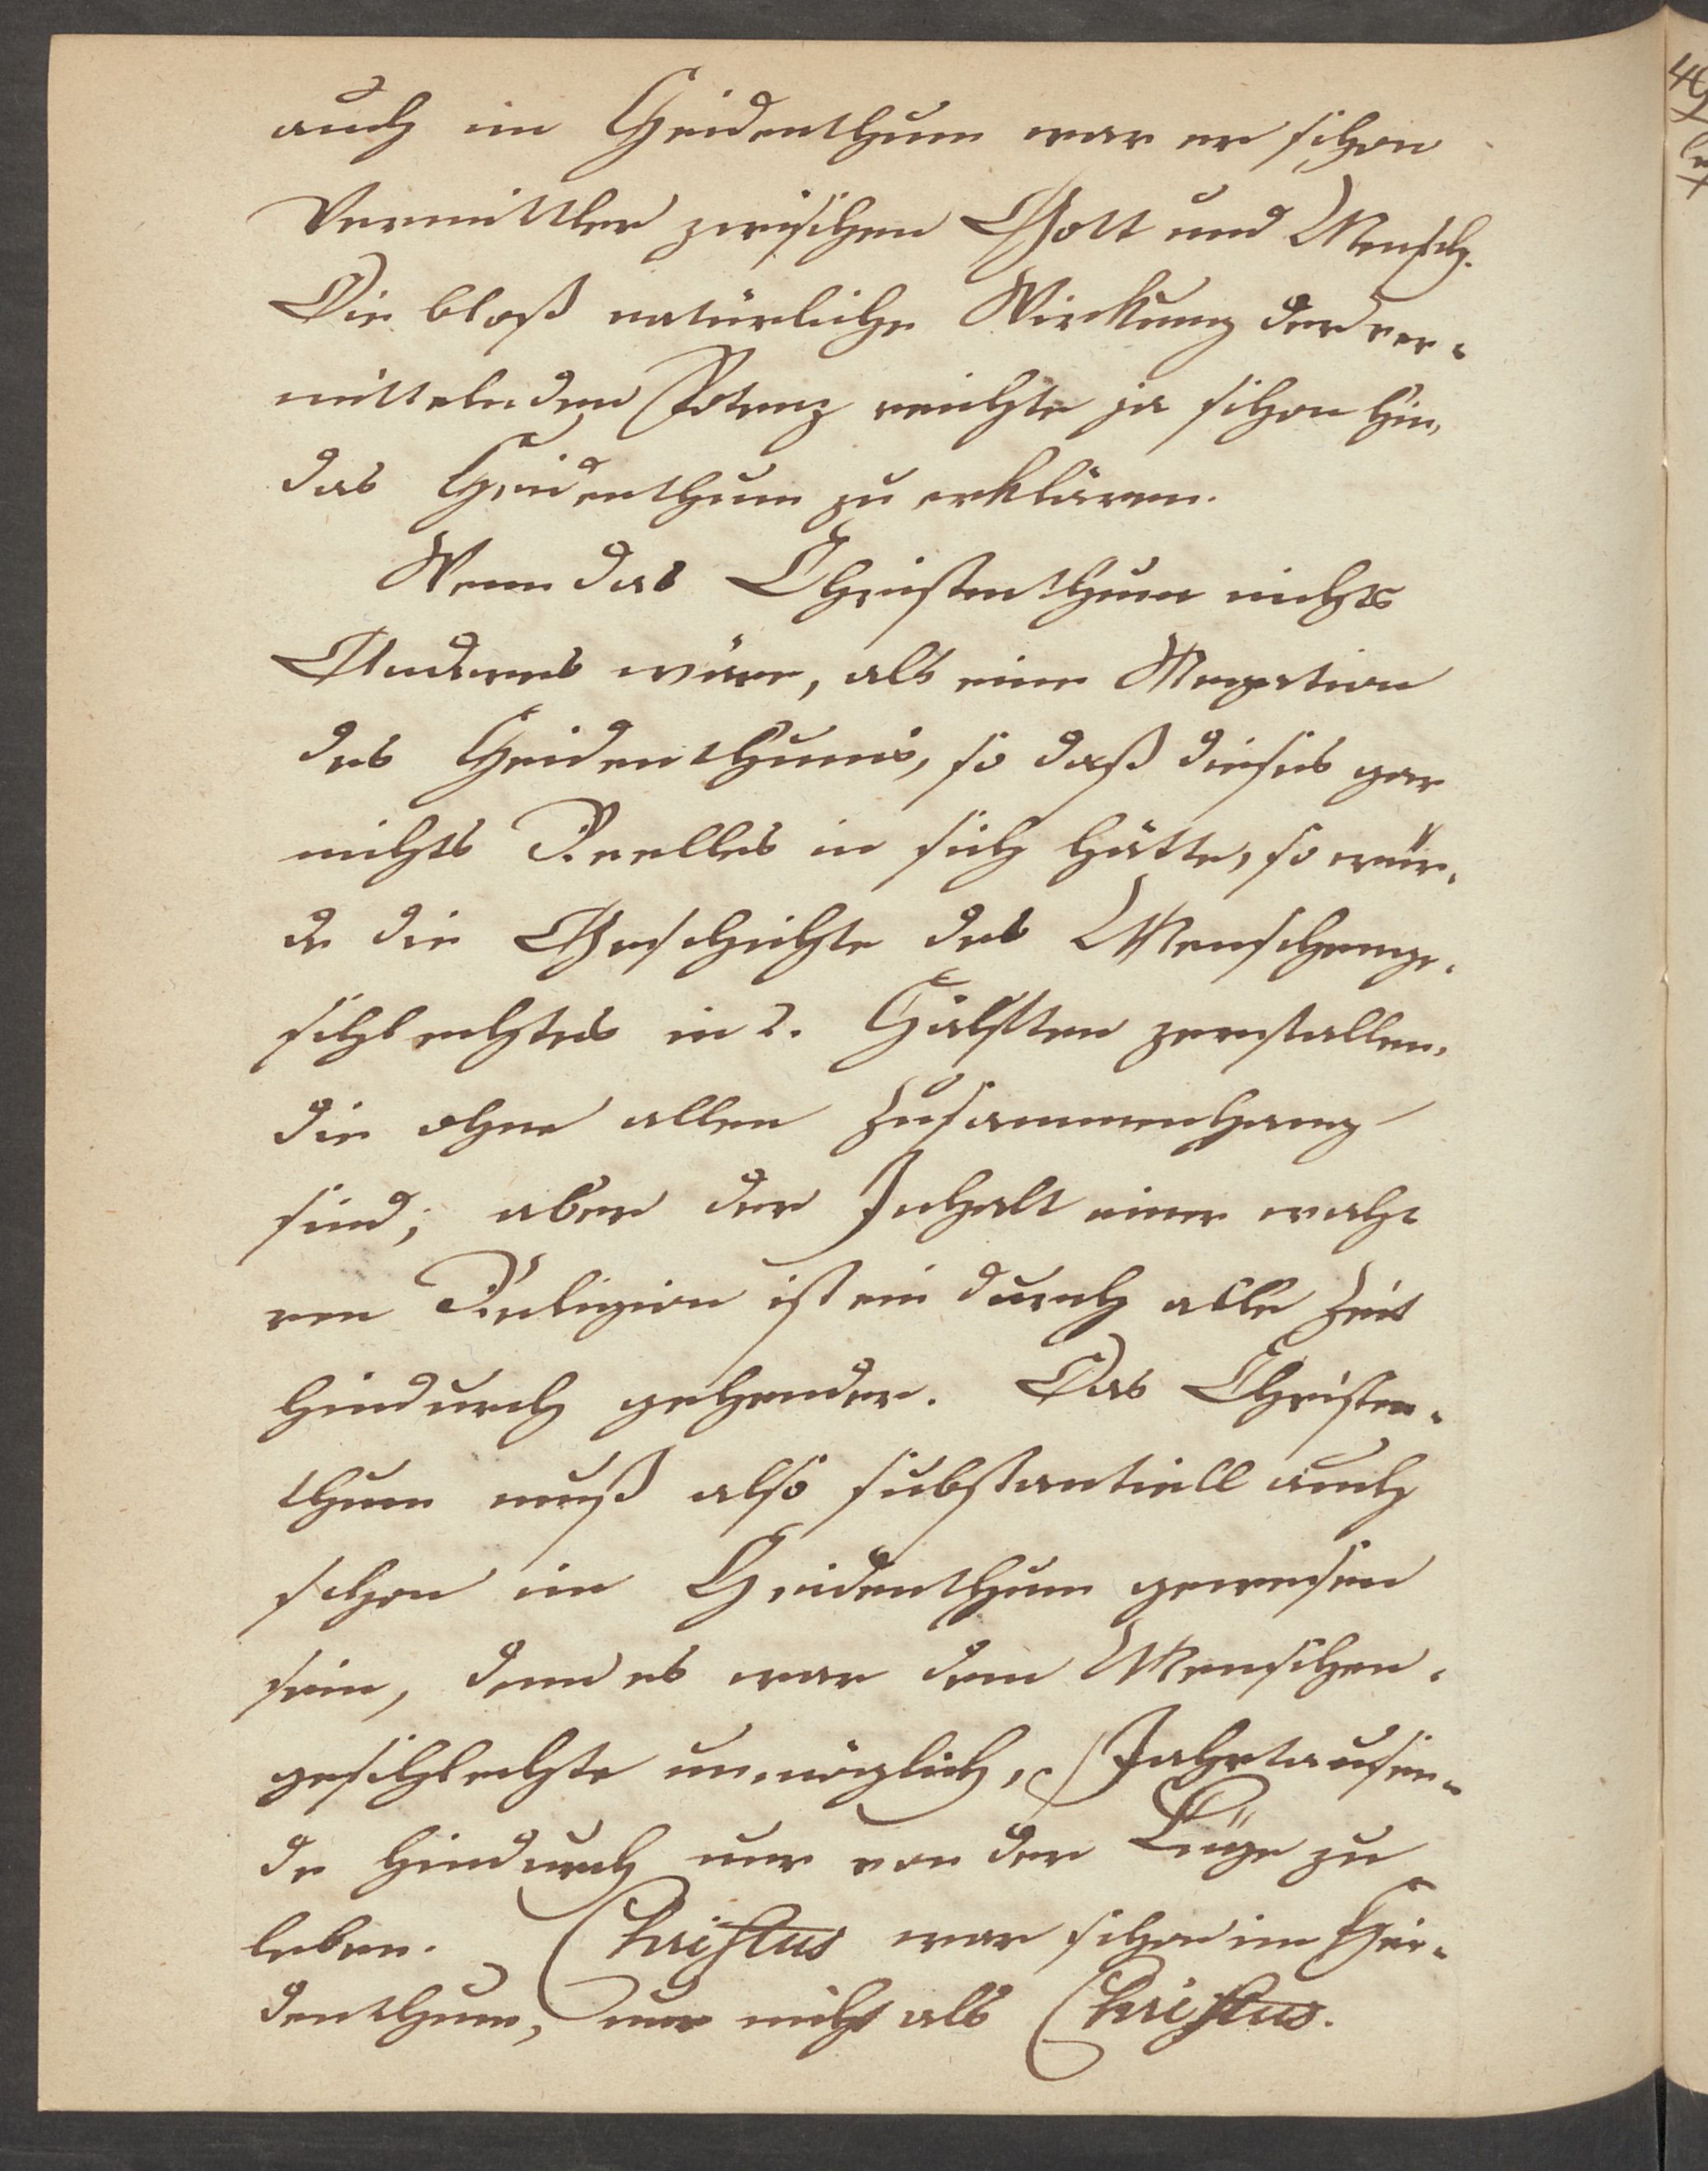 auch im Heidenthum war er schon
Vermittler zwischen Gott und Mensch.
Die bloß natürliche Wirkung der ver-
mittelnden Potenz reichte ja schon hin,
das Heidenthum zu erklären.
Wenn das Christenthum nichts
Anderes wäre, als eine Negation
des Heidenthums, so daß dieses gar
nichts Reelles in sich hätte, so wür-
de die Geschichte des Menschenge-
schlechtes in 2. Hälften zerfallen,
die ohne allen Zusammenhang
sind; aber der Inhalt einer wah-
ren Religion ist ein durch alle Zeit
hindurch gehender. Das Christen-
thum muß also substantiell auch
schon im Heidenthum gewesen
sein, denn es war dem Menschen-
geschlechte unmöglich, Jahrtausen-
de hindurch nur von der Lüge zu
leben. Christus war schon im Hei-
denthum, nur nicht als Christus.